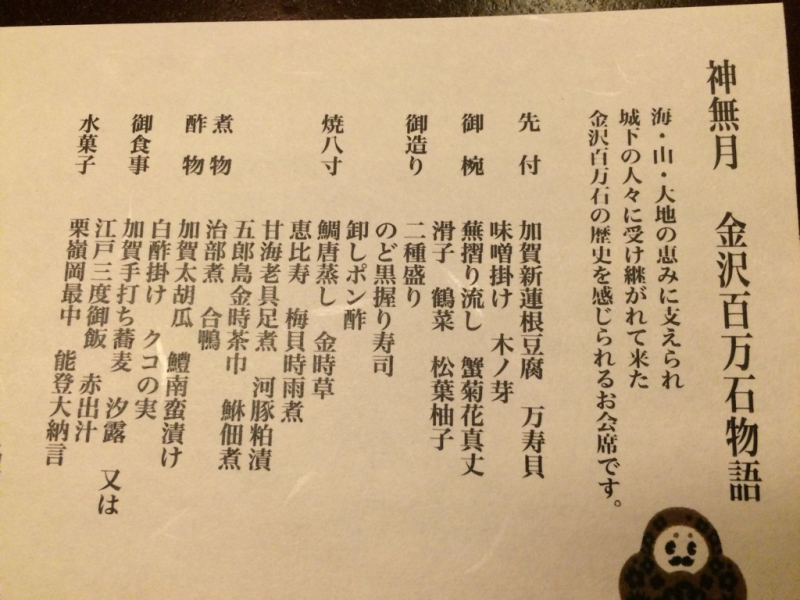 神無月 金沢百万石物語
海・山・大地の恵みに支えられ
城下の人々に受け継がれて来た
金沢百万石の歴史を感じられるお会席です。
先付 加賀新蓮根豆腐 万寿貝
味噌掛け 木ノ芽
御椀 蕪摺り流し 蟹菊花真丈
滑子 鶴菜 松葉柚子
御造り 二種盛り
のど黒握り寿司
卸しポン酢
焼八寸 鯛唐蒸し 金時草
恵比寿 梅貝時雨煮
甘海老具足煮 河豚粕漬
五郎島金時茶巾 鮴佃煮
煮物 治部煮 合鴨
酢物 加賀太胡瓜 鱧南蛮漬け
白酢掛け クコの実
御食事 加賀手打ち蕎麦 汐露 又は
江戸三度御飯 赤出汁
水菓子 栗嶺岡最中 能登大納言